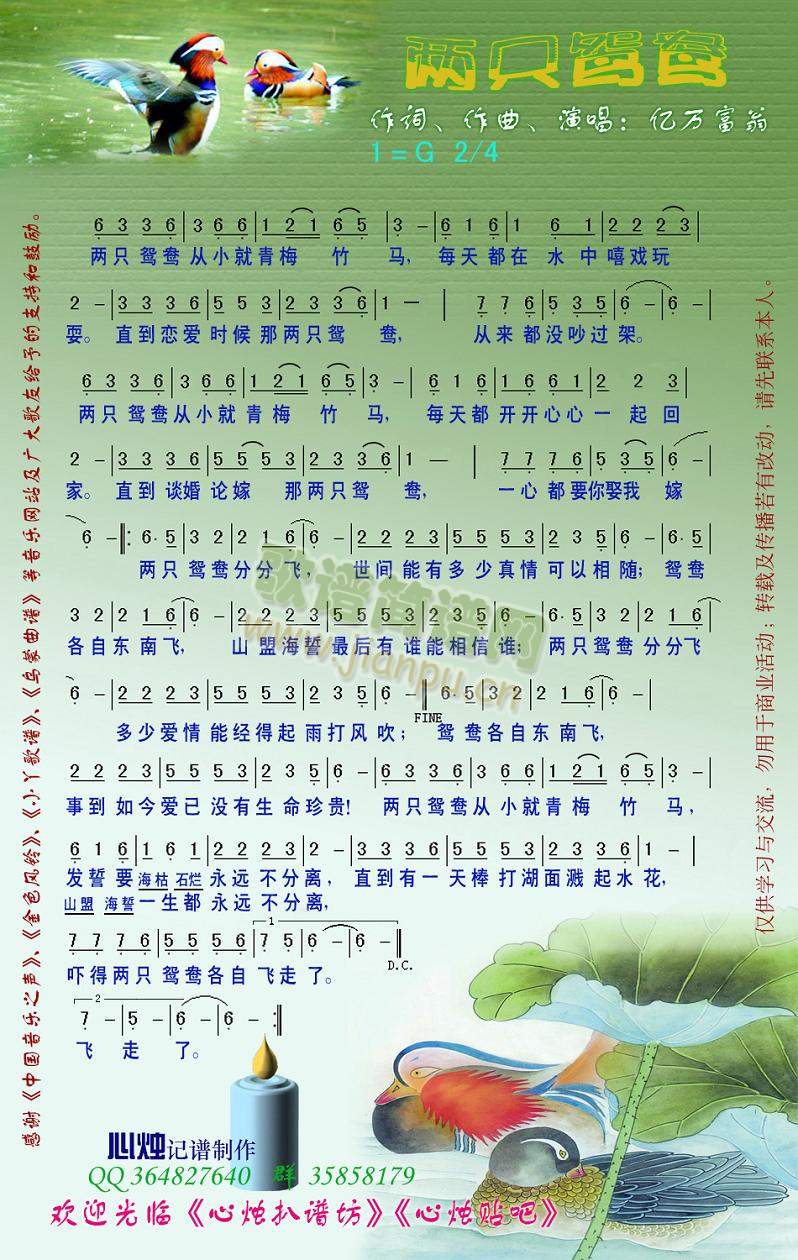 两只鸳鸯
作词、作曲、演唱：亿万富翁
1=G 2/4
感谢《中国音乐之声》、《金色风铃》、《小丫歌谱》、《乌蒙曲谱》等音乐网站及广大歌友给予的支持和鼓励。
仅供学习与交流，勿用于商业活动；转载及传播若有改动，请先联系本人。
6 3 3 6 | 3 6 6 | 1 2 1 6 5 | 3 - | 6 1 6 | 1 6 1 | 2 2 2 3 |
两只 鸳鸯 从小就青梅 竹 马， 每天都在 水 中嘻戏玩
2 - | 3 3 3 6 | 5 5 3 | 2 3 3 6 | 1 — | 7 7 6 | 5 3 5 | 6 - | 6 - |
耍。 直到恋爱 时候 那两只鸳 鸯， 从来都没吵过架。
6 3 3 6 | 3 6 6 | 1 2 1 6 5 | 3 - | 6 1 6 | 1 6 6 1 | 2 2 3 |
两只 鸳鸯从小就 青梅 竹 马， 每天都 开开心心 一 起 回
2 - | 3 3 3 6 | 5 5 5 3 | 2 3 3 6 | 1 — | 7 7 7 6 | 5 3 5 | 6 - |
家。 直到 谈婚 论嫁 那两只鸳 鸯， 一心 都要你娶我 嫁
6 - ‖: 6· 5 | 3 2 | 2 1 6 | 6 - | 2 2 2 3 | 5 5 5 3 | 2 3 5 | 6 - | 6· 5 |
两只 鸳鸯分分飞， 世间能有多少真情可以相随；鸳鸯
3 2 | 2 1 6 | 6 - | 2 2 2 3 | 5 5 5 3 | 2 3 5 | 6 - | 6· 5 | 3 2 | 2 1 6 |
各自东 南飞， 山盟海誓最后有谁能相信谁； 两只鸳鸯 分分飞
6 - | 2 2 2 3 | 5 5 5 3 | 2 3 5 | 6 - ‖ 6· 5 | 3 2 | 2 1 6 | 6 - |
FINE
多少爱情 能经得起 雨打风吹； 鸳鸯各自东 南飞，
2 2 2 3 | 5 5 5 3 | 5 5 3 | 2 3 5 | 6 - | 6 3 3 6 | 3 6 6 | 1 2 1 | 6 5 | 3 - |
事到 如今爱已 没有生命珍贵! 两只鸳鸯从小就青梅 竹 马，
6 1 6 | 1 6 1 | 2 2 2 3 | 2 - | 3 3 3 6 | 5 5 3 | 2 2 2 3 | 2 1 6 | 1 - |
发誓要 海枯 石烂 永远 不分离， 直到有一天棒 打湖面溅 起水花，
山盟 海誓一生都 永远 不分离，
7 7 7 6 | 5 5 5 6 | 7 5 | 6 - | 6 - ‖
1
D.C.
吓得两只 鸳鸯各自 飞走了。
2
7 - | 5 - | 6 - | 6 - :‖
飞 走 了。
歌谱简谱网
www.jianpu.cn
心烛记谱制作
QQ 364827640 群 35858179
欢迎光临《心烛扒谱坊》《心烛贴吧》